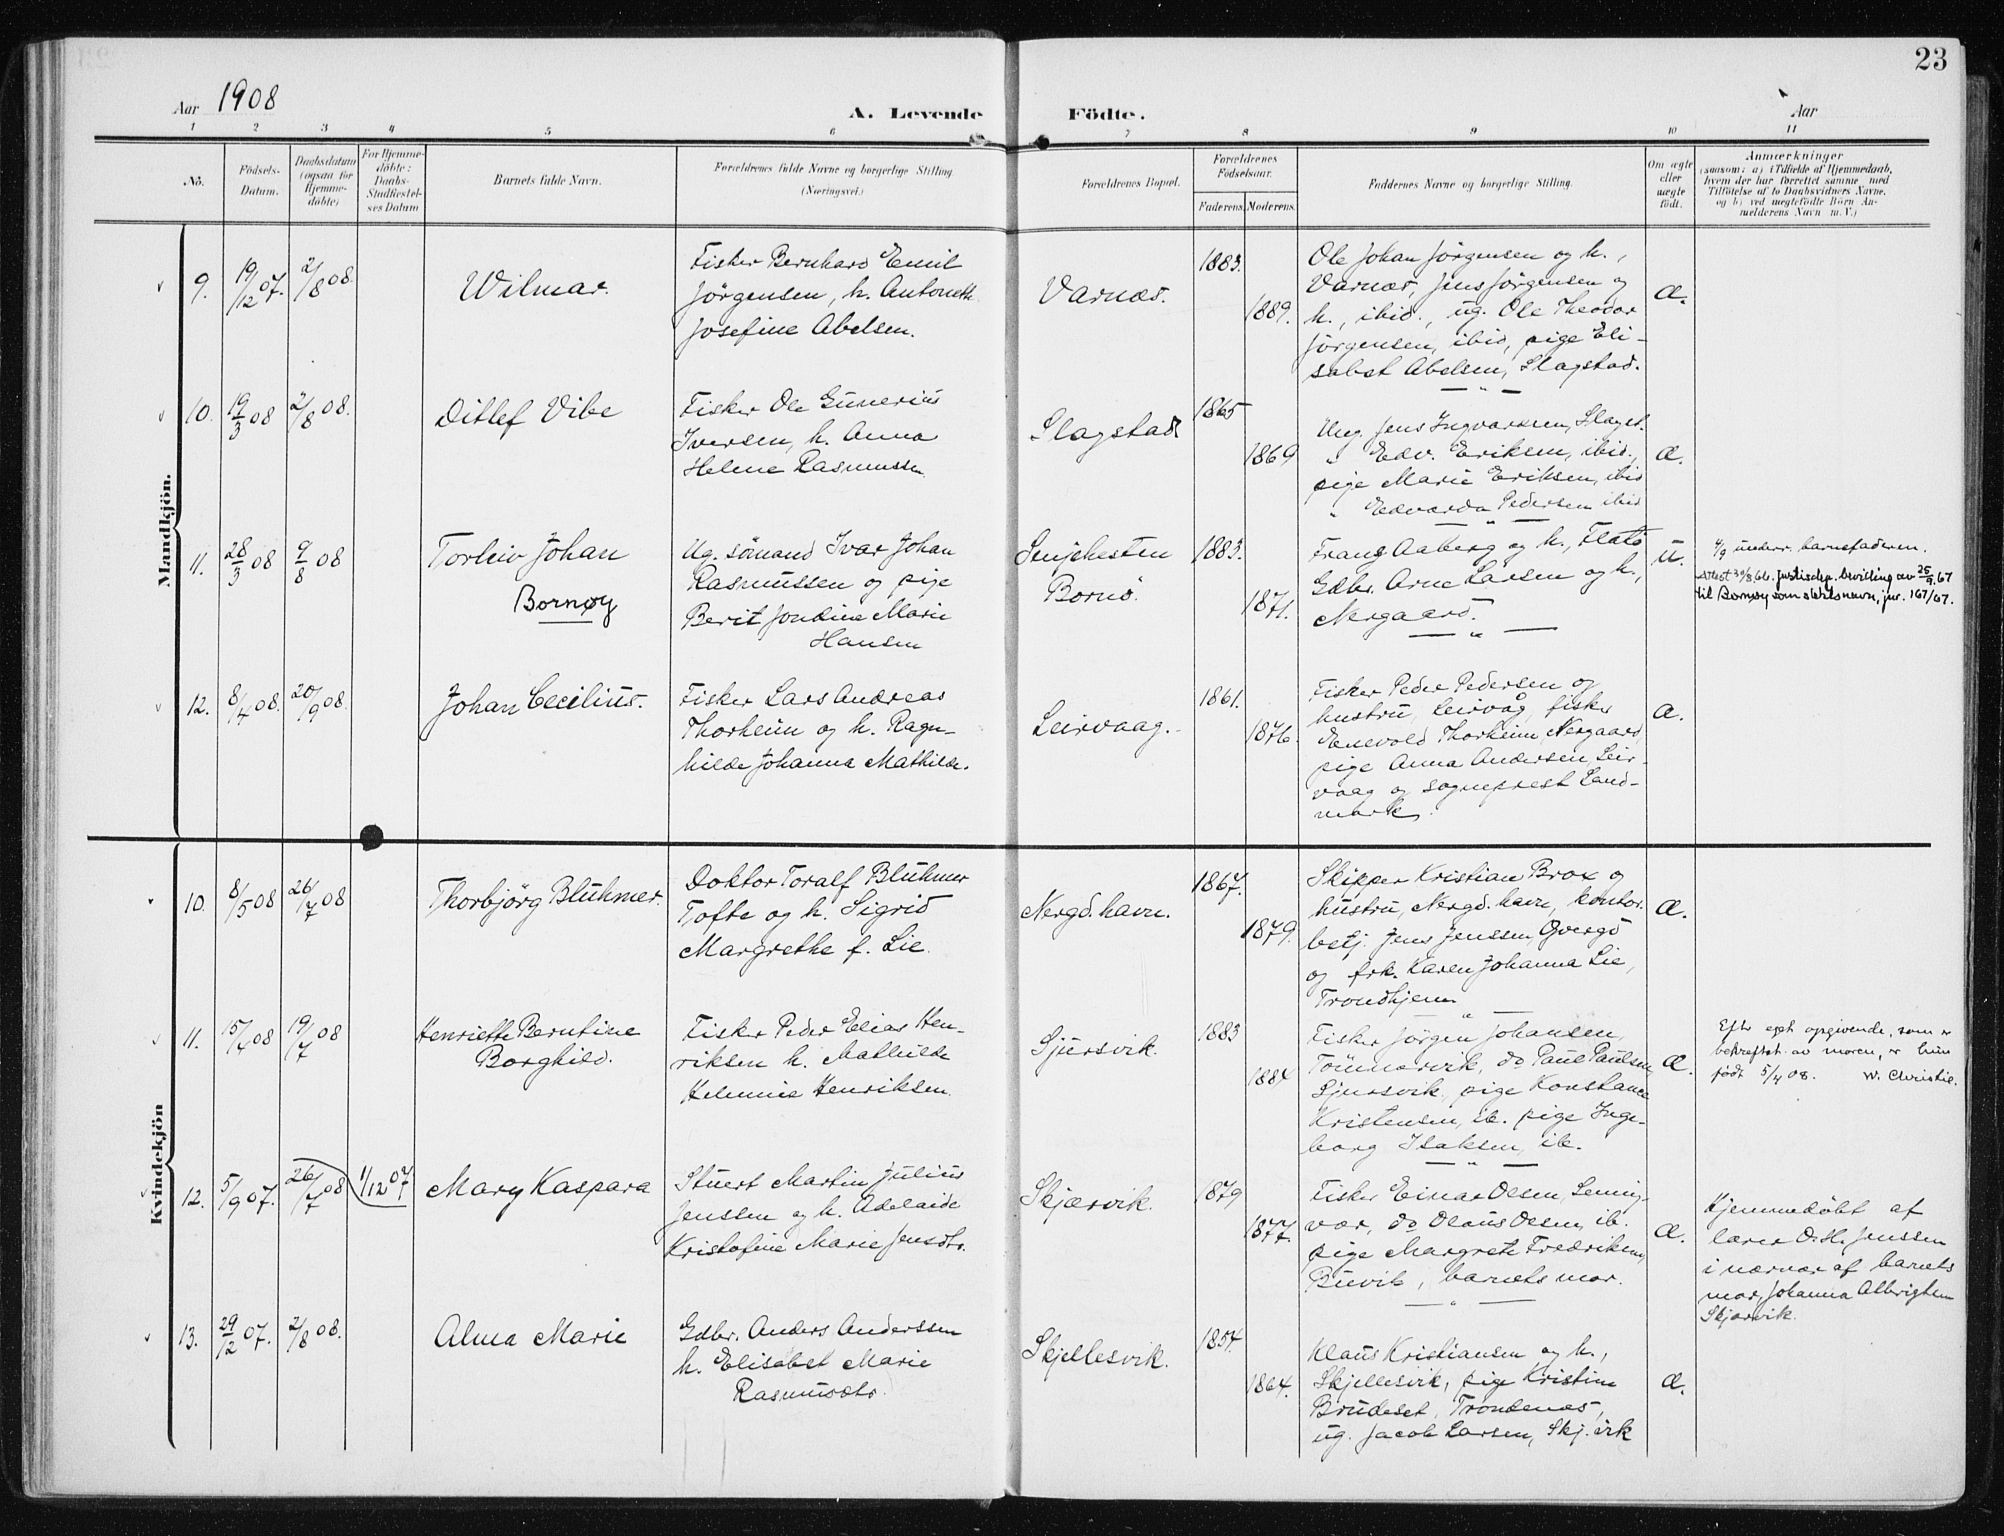 23
Aar 1908
A. Levende Födte.
Aar
1 2 3 4 5 6 7 8 9 10 11
No.
Födsels-
Datum.
Daabsdatum
(ogsaa for
Hjemme-
döbte)
For Hjemme-
döbte:
Daabs-
Stadfæstel-
ses Datum
Barnets fulde Navn.
Forældrenes fulde Navne og borgerlige Stilling
(Næringsvei.)
Forældrenes Bopæl.
Forældrenes
Födselsaar.
Faderens. Moderens.
Faddernes Navne og borgerlige Stilling.
Om ægte
eller
uægte
födt.
Anmærkninger
(saasom: a) i Tilfælde af Hjemmedaab,
hvem der har forrettet samme med
Tilföielse af to Daabsvidners Navne,
og b) ved uægtefödte Börn An-
melderens Navn m. V.)
Mandkjön.
9. 19/12 07. 2/8 08.
Wilmar.
Fisker Bernhard Emil
Jörgensen, h. Antoneth
Josefine Abelsen.
Varnæs.
1883.
1889.
Ole Johan Jörgensen og h.,
Varnæs, Jens Jörgensen og
h., ibid., ug. Ole Theodor
Jörgensen, ibid, pige Eli-
sabet Abelsen, Slagstad.
æ.
10. 19/3 08 2/8 08.
Ditlef Vibe
Fisker Ole Gunerius
Iversen, h. Anna
Helene Rasmussen
Slagstad
1865
1869
Ung. Jens Ingvarssen, Slagst.
" Edv. Eriksen, ibid.,
pige Marie Eriksen, ibid
" Edvarda Pedersen ibid
æ.
11. 28/3 08 9/8 08
Torleiv Johan
Bornøy
Ug. sömand Ivar Johan
Rasmussen og pige
Berit Jondine Marie
Hansen
Senjehesten
Bornö.
1883.
1871.
Frans Aaberg og h., Flatö
Gdbr. Arne Larsen og h.,
Nergaard.
u.
4/9 underr. barnefaderen.
Attest 30/8 66. Justisdep. bevilling av 25/9.67
til Bornøy som slektsnavn, jnr. 167/67.
12. 8/4 08. 20/9 08.
Johan Cecilius.
Fisker Lars Andreas
Thorheim og h. Ragn-
hilde Johanna Mathilde.
Leirvaag.
1861.
1876.
Fisker Peder Pedersen og
hustru, Leirvåg, fisker
Enevold Thorheim, Nergaard,
pige Anna Andersen, Leir-
vaag og sogneprest Land-
mark.
æ.
Kvindekjön
10. 8/5 08 26/7 08
Thorbjörg Blühmer.
Doktor Toralf Blühmer
Tofte og h. Sigrid
Margrethe f. Lie.
Nergd.havn.
1867.
1879.
Skipper Kristian Brox og
hustru, Nergd.havn, kontor-
betj. Jens Jenssen, Gversgö
og frk. Karen Johanna Lie,
Trondhjem
æ.
11. 15/4 08 19/7 08
Henriette Berntine
Borghild.
Fisker Peder Elias Hen-
riksen h. Mathilde
Helmine Henriksen.
Sjursvik.
1883
1884
Fisker Jörgen Johansen,
Tömmervik, do Paul Paulsen,
Sjursvik, pige Konstance
Kristensen, ib. pige Inge-
borg Isaksen, ib.
æ.
Efter eget opgivende, som er
bekreftet av moren, er hun
født 5/4 08. W. Christie.
12. 5/9 07. 26/7 08 1/12 07
Mary Kaspara
Stuert Martin Julius
Jenssen og h. Adelaide
Kristofine Marie Jensdtr.
Skjærvik.
1879
1877.
Fisker Einar Olsen, Senning-
vær, do Olaus Olsen, ib.
pige Margrete Fredriksen,
Buvik, barnets mor.
æ.
Hjemmedöbt af
lærer O. H. Jenssen
i nærvær af barnets
mor, Johanna Albrigtsen
Skjærvik.
13. 29/12 07. 2/8 08.
Alma Marie
Gdbr. Anders Anderssen
h. Elisabet Marie
Rasmusdtr.
Skjellesvik.
1857.
1864.
Klaus Kristiansen og h.,
Skjellesvik, pige Kristine
Brudeset, Trondenæs,
ug. Jacob Larsen, Skj.vik
æ.